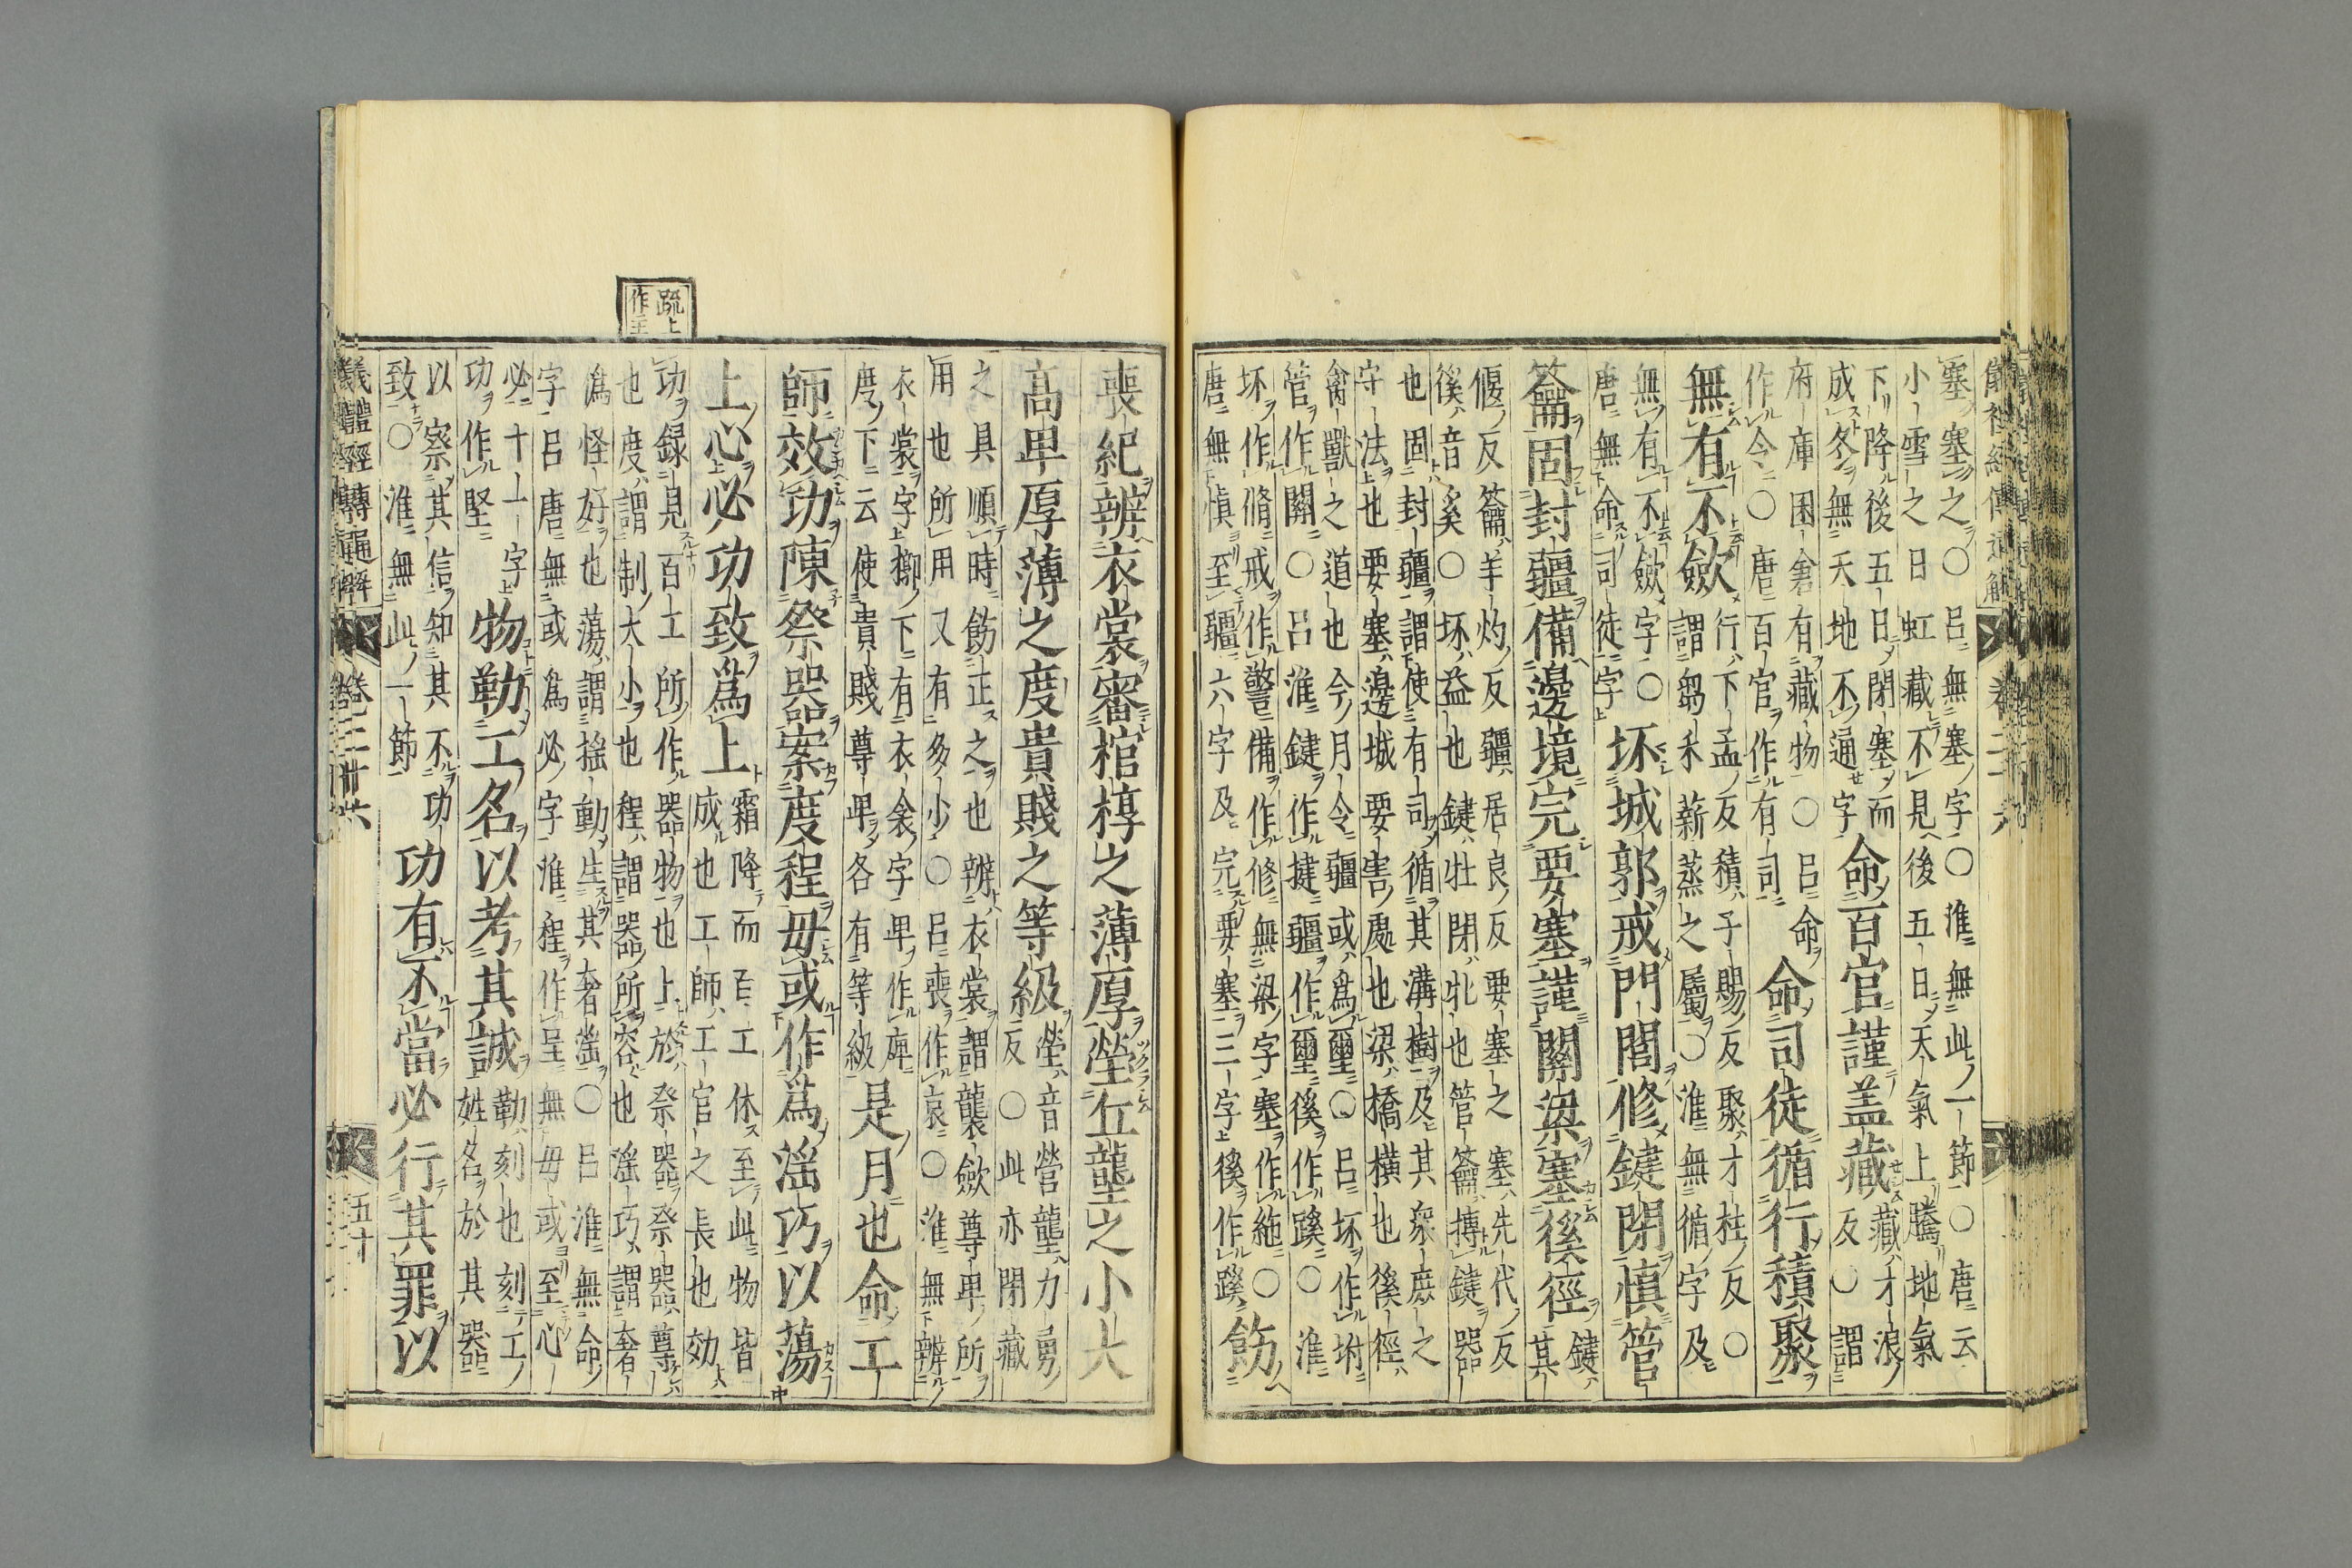 塞塞之○呂無塞字○淮無此一節○唐云
小雪之日虹藏不見後五日天氣上騰地氣
下降後五日閉塞而
成冬無天地不通字
命百官謹盖藏
藏才浪
反○謂
府庫囷倉有藏物○呂命
作令○唐百官作有司
命司徒循行積聚
無有不斂
行下孟反積子賜反聚才柱反○
謂芻禾薪蒸之屬○淮無循字及
無有不斂字○
唐無命司徒字
坏城郭戒門閭修鍵閉慎管
籥固封疆備邊境完要塞謹關梁塞徯徑
鍵
其
偃反籥羊灼反疆居良反要塞之塞先代反
徯音奚○坏益也鍵牡閉牝也管籥搏鍵器
也固封疆謂使有司循其溝樹及其衆庶之
守法也要塞邊城要害處也梁橋橫也徯徑
禽獸之道也今月令疆或為壐○呂坏作坿
管作關○呂淮鍵作揵疆作壐徯作蹊○淮
坏作脩戒作警備作修無梁字塞作絁○
唐無慎至疆六字及完要塞三字徯作蹊
飭
喪紀辨衣裳審棺椁之薄厚塋丘壟之小大
高卑厚薄之度貴賤之等級
塋音營壟力勇
反○此亦閉藏
之具順時飭正之也辨衣裳謂襲斂尊卑所
用也所用又有多少○呂喪作哀○淮無辨
衣裳字櫛下有衣衾字卑作庳
度下云使貴賤尊卑各有等級
是月也命工
師效功陳祭器案度程毋或作為淫巧以蕩
上心必功致為上
霜降而百工休至此物皆
成也工師工官之長也効
功錄見百工所作器物也上於祭器祭器尊
也度謂制大小也程謂器所容也淫巧謂奢
為怪好也蕩謂搖動生其奢淫○呂淮無命
字呂唐無或為必字淮程作呈無毋或至心
必十一字
功作堅
物勒工名以考其誠
勒刻也刻工
姓名於其器
以察其信知其不功
致○淮無此一節
功有不當必行其罪以
疏上
作主
儀禮經傳通解
卷二十六
五十